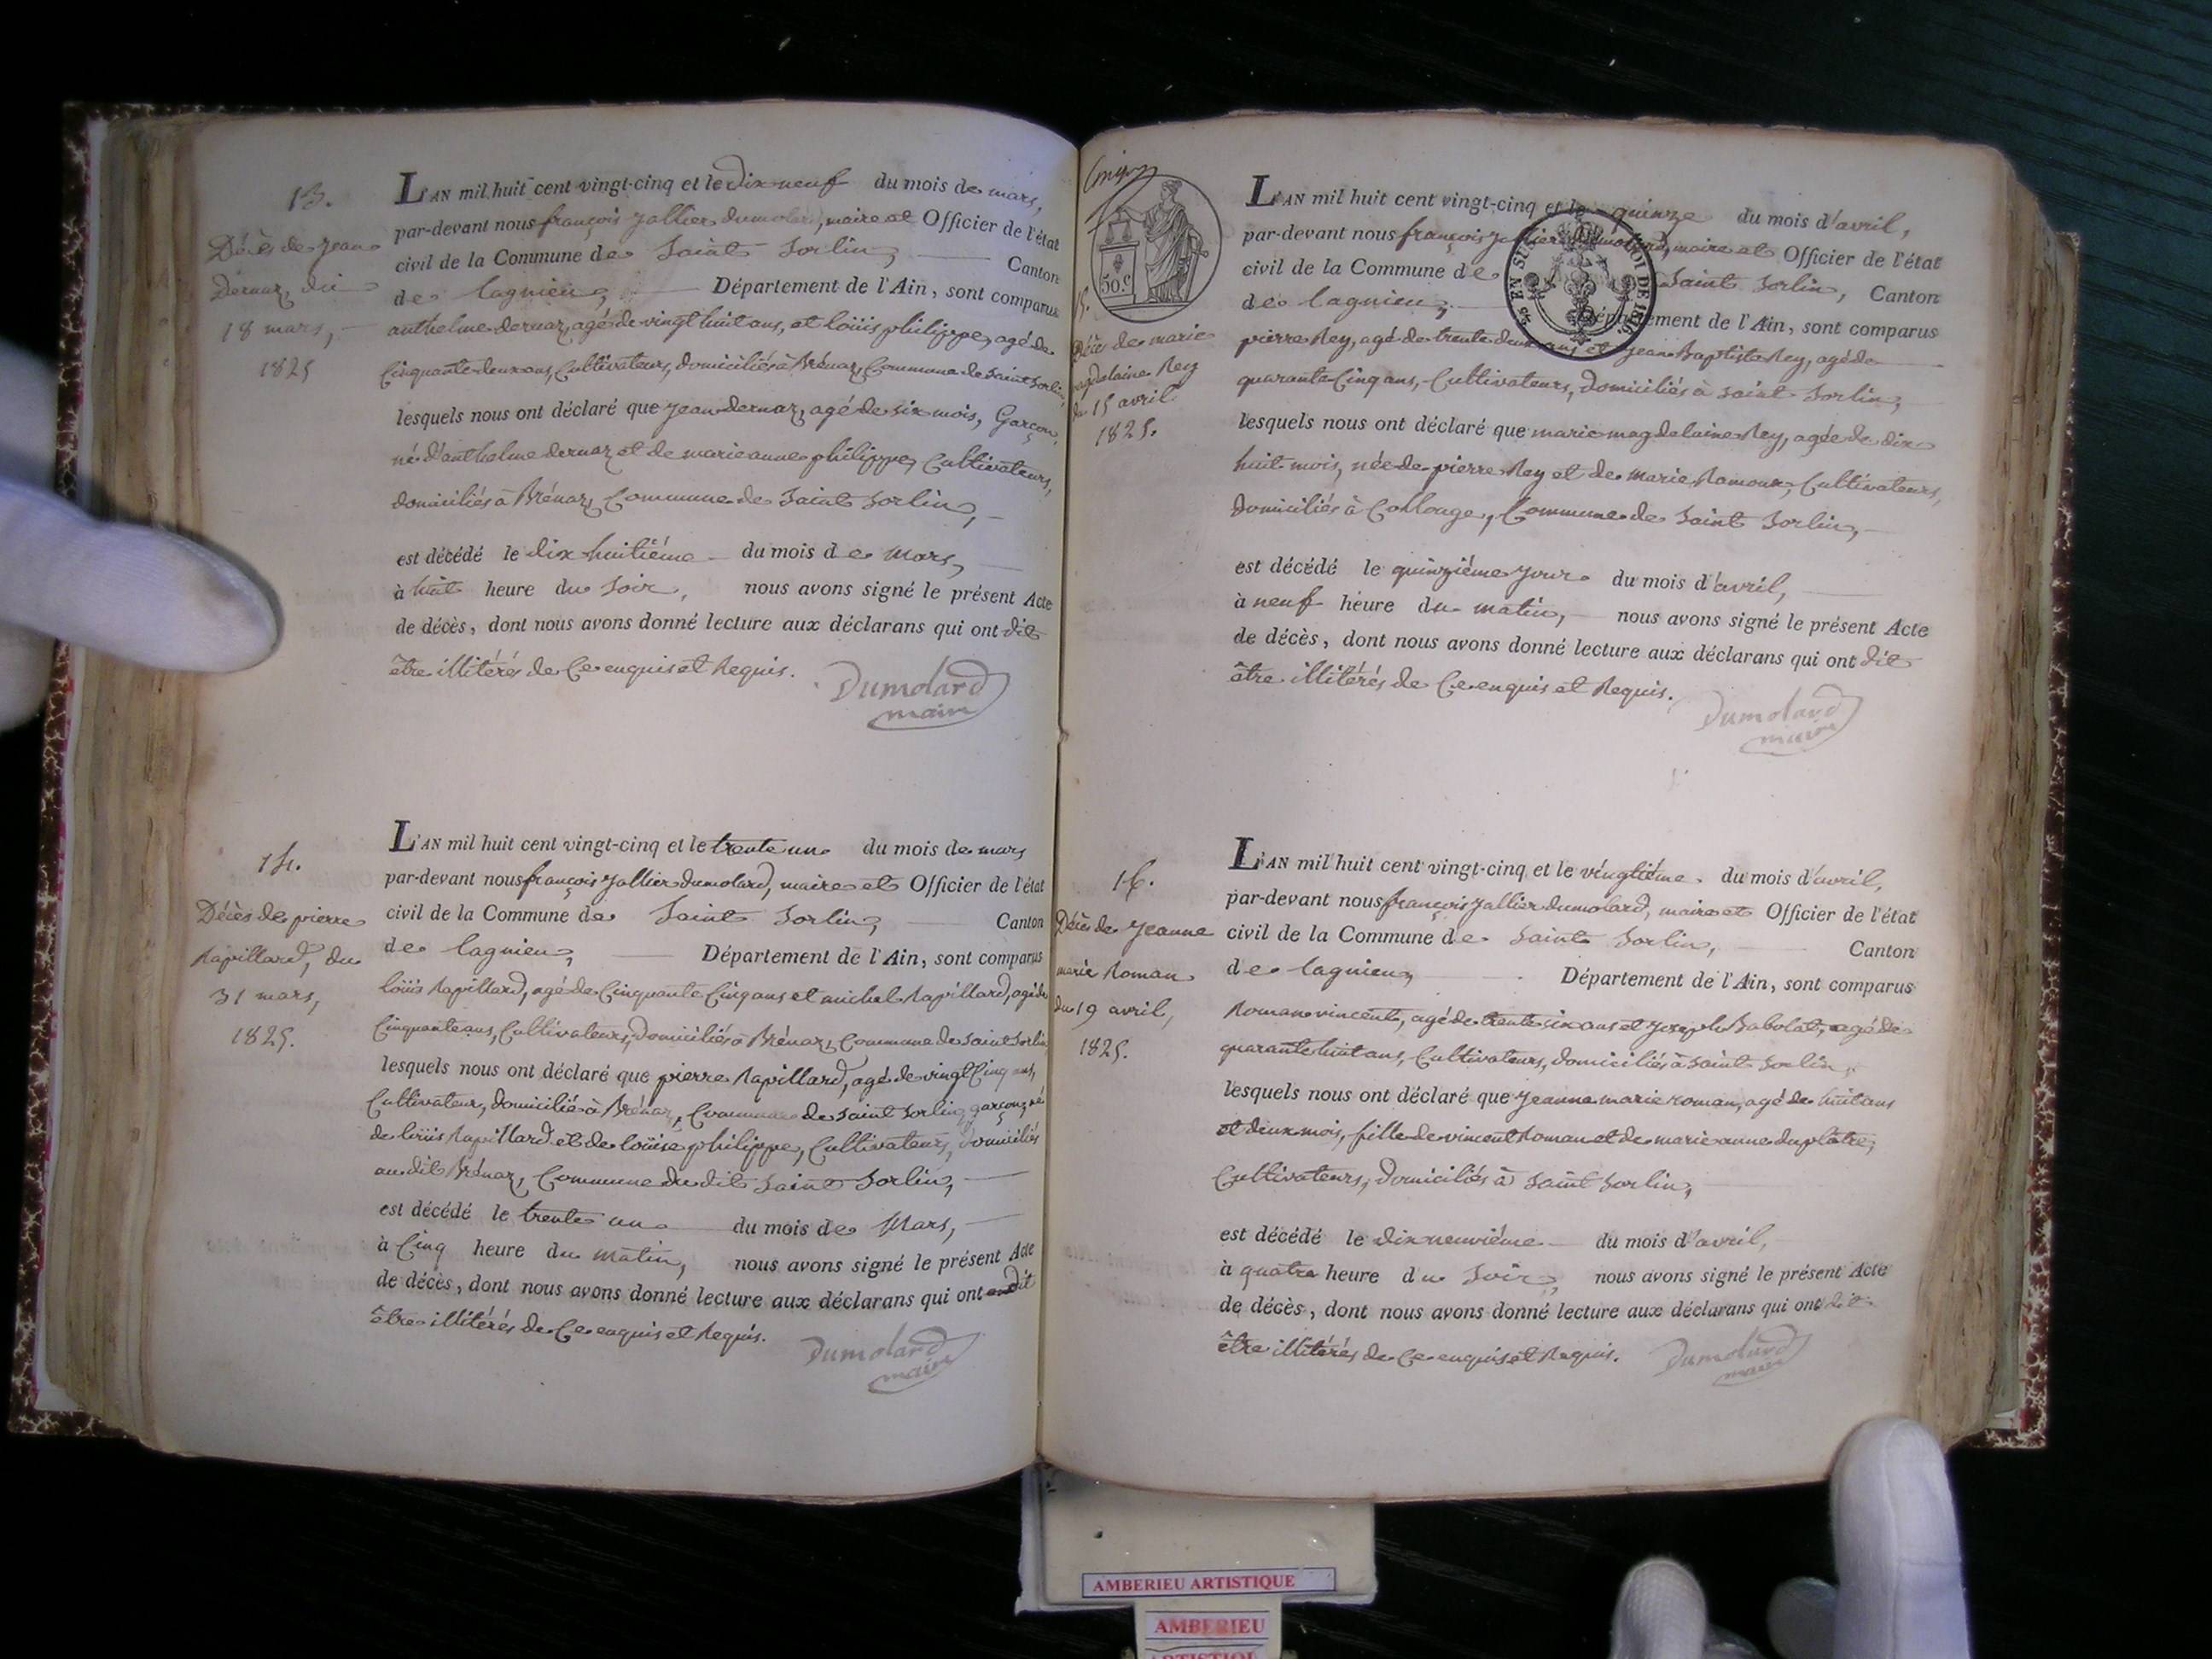 13.
Décès de jean
Dernaz du
18 mars,
1825
L'AN mil huit cent vingt-cinq et le dix neuf du mois de mars,
par-devant nous françois jallier dumolard, maire et Officier de l'état
civil de la Commune de Saint Sorlin, Canton
de lagnieu, Département de l'Ain, sont comparus
anthelme dernaz, agé de vingt huit ans, et loüis philippe, agé de
Cinquante deux ans, Cultivateurs, domiciliés à Brénaz, Commune de Saint Sorlin,
lesquels nous ont déclaré que jean dernaz, agé de six mois, Garçon,
né d'anthelme dernaz et de marie anne philippe, Cultivateurs,
domiciliés à Brénaz, Commune de Saint Sorlin,
est décédé le dix huitiéme du mois de mars,
à huit heure du Soir, nous avons signé le présent Acte
de décès, dont nous avons donné lecture aux déclarans qui ont dit
être illitérés de Ce enquis et Requis.
Dumolard
maire
14.
Décès de pierre
Rapillard, du
31 mars,
1825.
L'AN mil huit cent vingt-cinq et le trente un du mois de mars
par-devant nous françois jallier dumolard, maire et Officier de l'état
civil de la Commune de Saint Sorlin, Canton
de lagnieu, Département de l'Ain, sont comparus
loüis Rapillard, agé de Cinquante Cinq ans et michel Rapillard, agé de
Cinquante ans, Cultivateurs, domiciliés à Brénaz, Commune de Saint Sorlin
lesquels nous ont déclaré que pierre Rapillard, agé de vingt Cinq ans,
Cultivateur, domicilié à Brénaz, Commune de Saint Sorlin, garçon, né
de loüis Rapillard et de loüise philippe, Cultivateurs, domiciliés
au dit Brénaz, Commune du dit Saint Sorlin,
est décédé le trente un du mois de Mars,
à Cinq heure du matin, nous avons signé le présent Acte
de décès, dont nous avons donné lecture aux déclarans qui ont dit
être illitérés de Ce enquis et Requis.
Dumolard
maire
50.c
EN SUS LOI DE 1816.
15.
Décès de marie
magdelaine Rey
du 15 avril
1825.
L'AN mil huit cent vingt-cinq et le quinze du mois d'avril,
par-devant nous françois jallier dumolard, maire et Officier de l'état
civil de la Commune de Saint Sorlin, Canton
de lagnieu, Département de l'Ain, sont comparus
pierre Rey, agé de trente deux ans et jean Baptiste Rey, agé de
quarante Cinq ans, Cultivateurs, domiciliés à Saint Sorlin,
lesquels nous ont déclaré que marie magdelaine Rey, agée de dix
huit mois, née de pierre Rey et de marie Ramoux, Cultivateurs,
domiciliés à Collonge, Commune de Saint Sorlin,
est décédé le quinziéme jour du mois d'avril,
à neuf heure du matin, nous avons signé le présent Acte
de décès, dont nous avons donné lecture aux déclarans qui ont dit
être illitérés de Ce enquis et Requis.
Dumolard
maire
16.
Décès de jeanne
marie Roman
du 19 avril,
1825.
L'AN mil huit cent vingt-cinq et le vingtiéme du mois d'avril,
par-devant nous françois jallier dumolard, maire et Officier de l'état
civil de la Commune de Saint Sorlin, Canton
de lagnieu, Département de l'Ain, sont comparus
Roman vincent, agé de trente six ans et joseph Babolat, agé de
quarante huit ans, Cultivateurs, domiciliés à Saint Sorlin,
lesquels nous ont déclaré que jeanne marie roman, agé de huit ans
et deux mois, fille de vincent Roman et de marie anne duplâtre,
Cultivateurs, domiciliés à Saint Sorlin,
est décédé le dix neuviéme du mois d'avril,
à quatre heure du Soir, nous avons signé le présent Acte
de décès, dont nous avons donné lecture aux déclarans qui ont dit
être illitérés de Ce enquis et Requis.
Dumolard
maire
AMBERIEU ARTISTIQUE
AMBERIEU
ARTISTIQUE